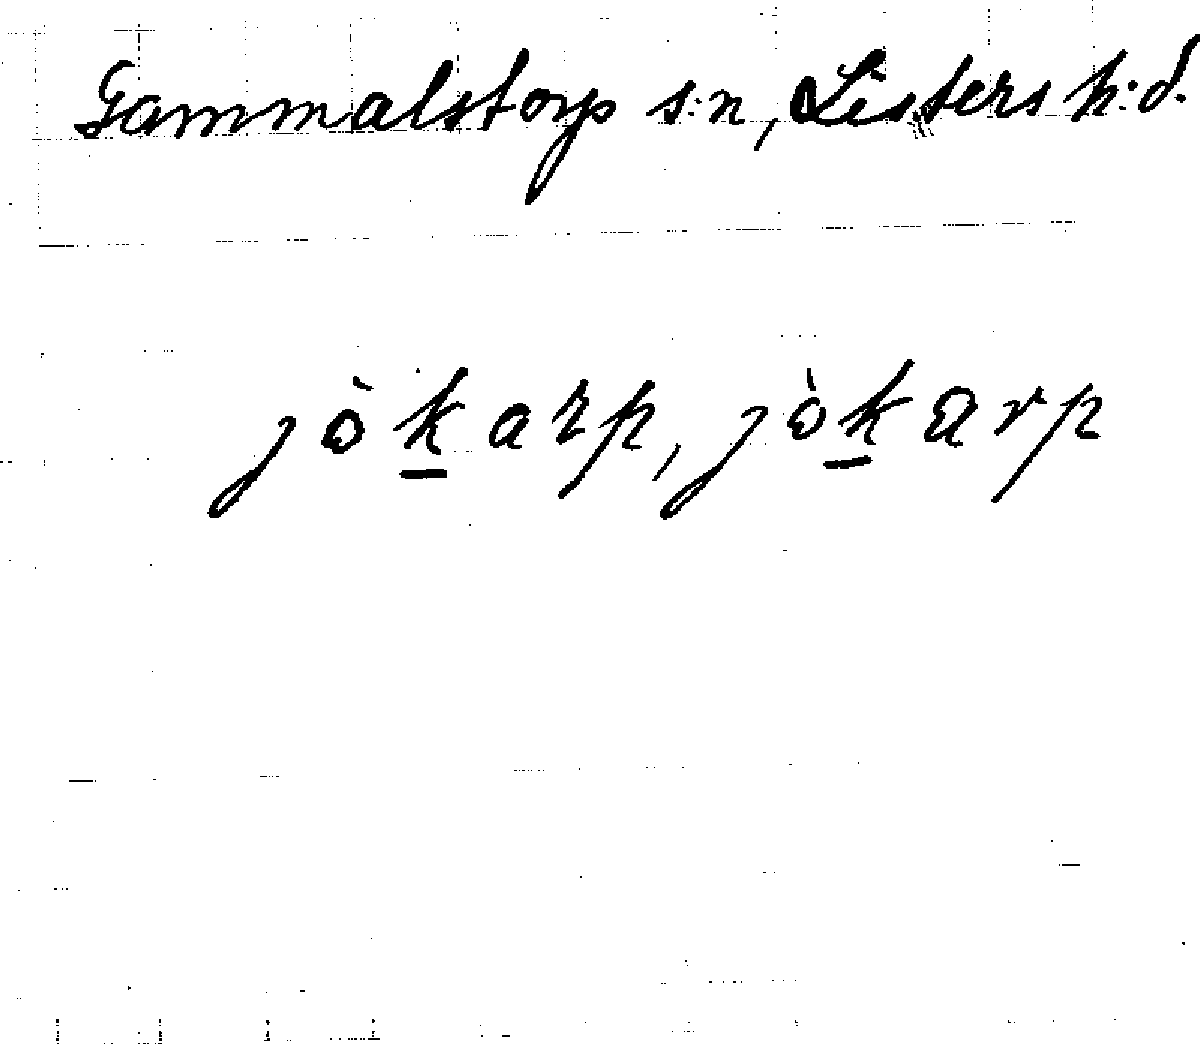 Gammalstorp s:n, Listers h:d.
jò̱k̲arp, jòk̲arp